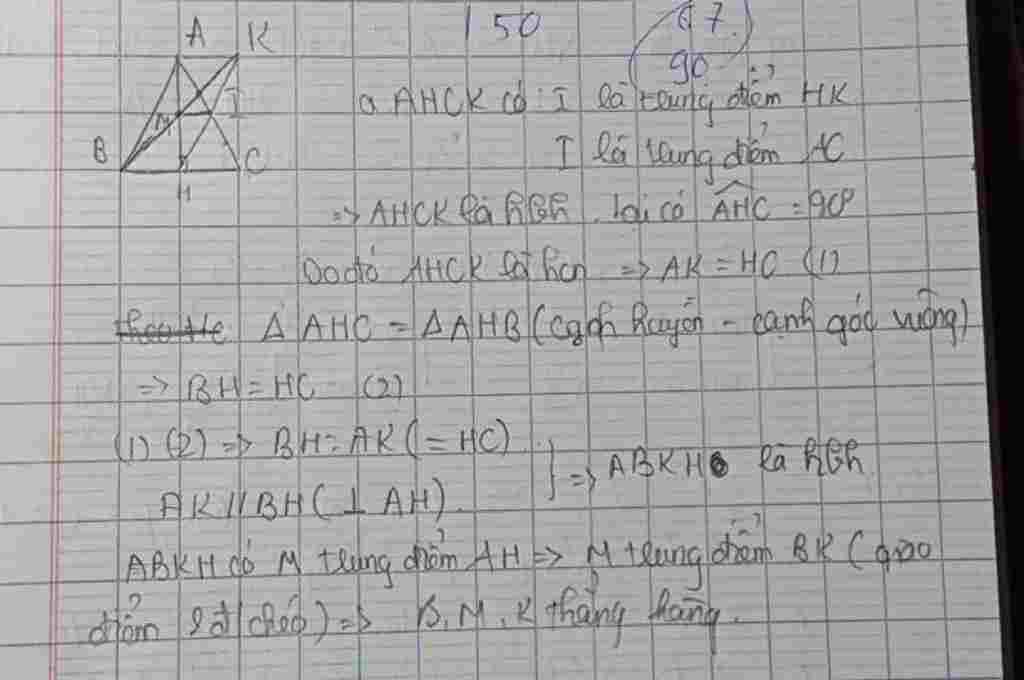 A K
150
67
90
I
M
B
C
H
a AHCK có : I là trung điểm HK
I là trung điểm AC
=> AHCK là hbh. lại có AHC = 90°
Do đó AHCK là hcn => AK = HC (1)
theo Δ AHC = Δ AHB (cạnh huyền - cạnh góc vuông)
=> BH = HC (2)
(1) (2) => BH = AK (= HC)
AK // BH ( ⊥ AH). } => ABKH là hbh
ABKH có M trung điểm AH => M trung điểm BK (giao
điểm 2 đ chéo) => B, M, K thẳng hàng.